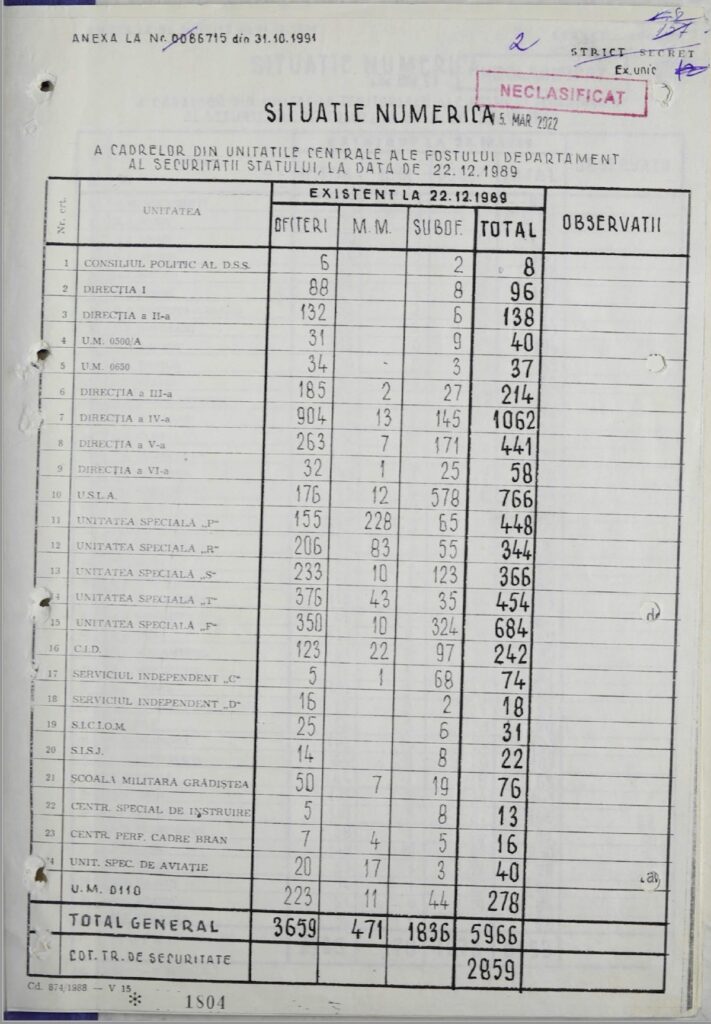 ANEXA LA Nr. 0086715 din 31.10.1991
2
STRICT SECRET
Ex. unic
NECLASIFICAT
SITUATIE NUMERICA
MAR. 2022
A CADRELOR DIN UNITATILE CENTRALE ALE FOSTULUI DEPARTAMENT
AL SECURITATII STATULUI, LA DATA DE 22.12.1989
Nr. crt. UNITATEA EXISTENT LA 22.12.1989 OBSERVATII
OFITERI M.M. SUBOF. TOTAL
1 CONSILIUL POLITIC AL D.S.S. 6 2 8
2 DIRECȚIA I 88 8 96
3 DIRECȚIA a II-a 132 6 138
4 U.M. 0500/A 31 9 40
5 U.M. 0650 34 - 3 37
6 DIRECȚIA a III-a 185 2 27 214
7 DIRECȚIA a IV-a 904 13 145 1062
8 DIRECȚIA a V-a 263 7 171 441
9 DIRECȚIA a VI-a 32 1 25 58
10 U.S.L.A. 176 12 578 766
11 UNITATEA SPECIALĂ „P“ 155 228 65 448
12 UNITATEA SPECIALĂ „R“ 206 83 55 344
13 UNITATEA SPECIALĂ „S“ 233 10 123 366
14 UNITATEA SPECIALĂ „T“ 376 43 35 454
15 UNITATEA SPECIALĂ „F“ 350 10 324 684
16 C.I.D. 123 22 97 242
17 SERVICIUL INDEPENDENT „C“ 5 1 68 74
18 SERVICIUL INDEPENDENT „D“ 16 2 18
19 S.I.C.I.O.M. 25 6 31
20 S.I.S.J. 14 8 22
21 ȘCOALA MILITARĂ GRĂDIȘTEA 50 7 19 76
22 CENTR. SPECIAL DE INSTRUIRE 5 8 13
23 CENTR. PERF. CADRE BRAN 7 4 5 16
24 UNIT. SPEC. DE AVIAȚIE 20 17 3 40
U.M. 0110 223 11 44 278
TOTAL GENERAL 3659 471 1836 5966
BAT. TR. DE SECURITATE 2859
Cd. 874/1988 — V 15
* 1804